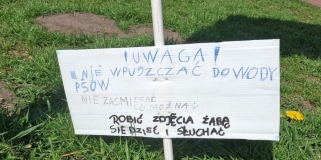 ! UWAGA !
NIE WPUSZCZAĆ DO WODY
PSÓW
NIE ZAŚMIECAĆ
MOŻNA:
ROBIĆ ZDJĘCIA ŻABĄ
SIEDZIEĆ I SŁUCHAĆ